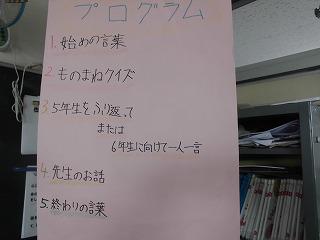 プログラム
1. 始めの言葉
2. ものまねクイズ
3. 5年生をふり返って
または
6年生に向けて一人一言
4. 先生のお話
5. 終わりの言葉